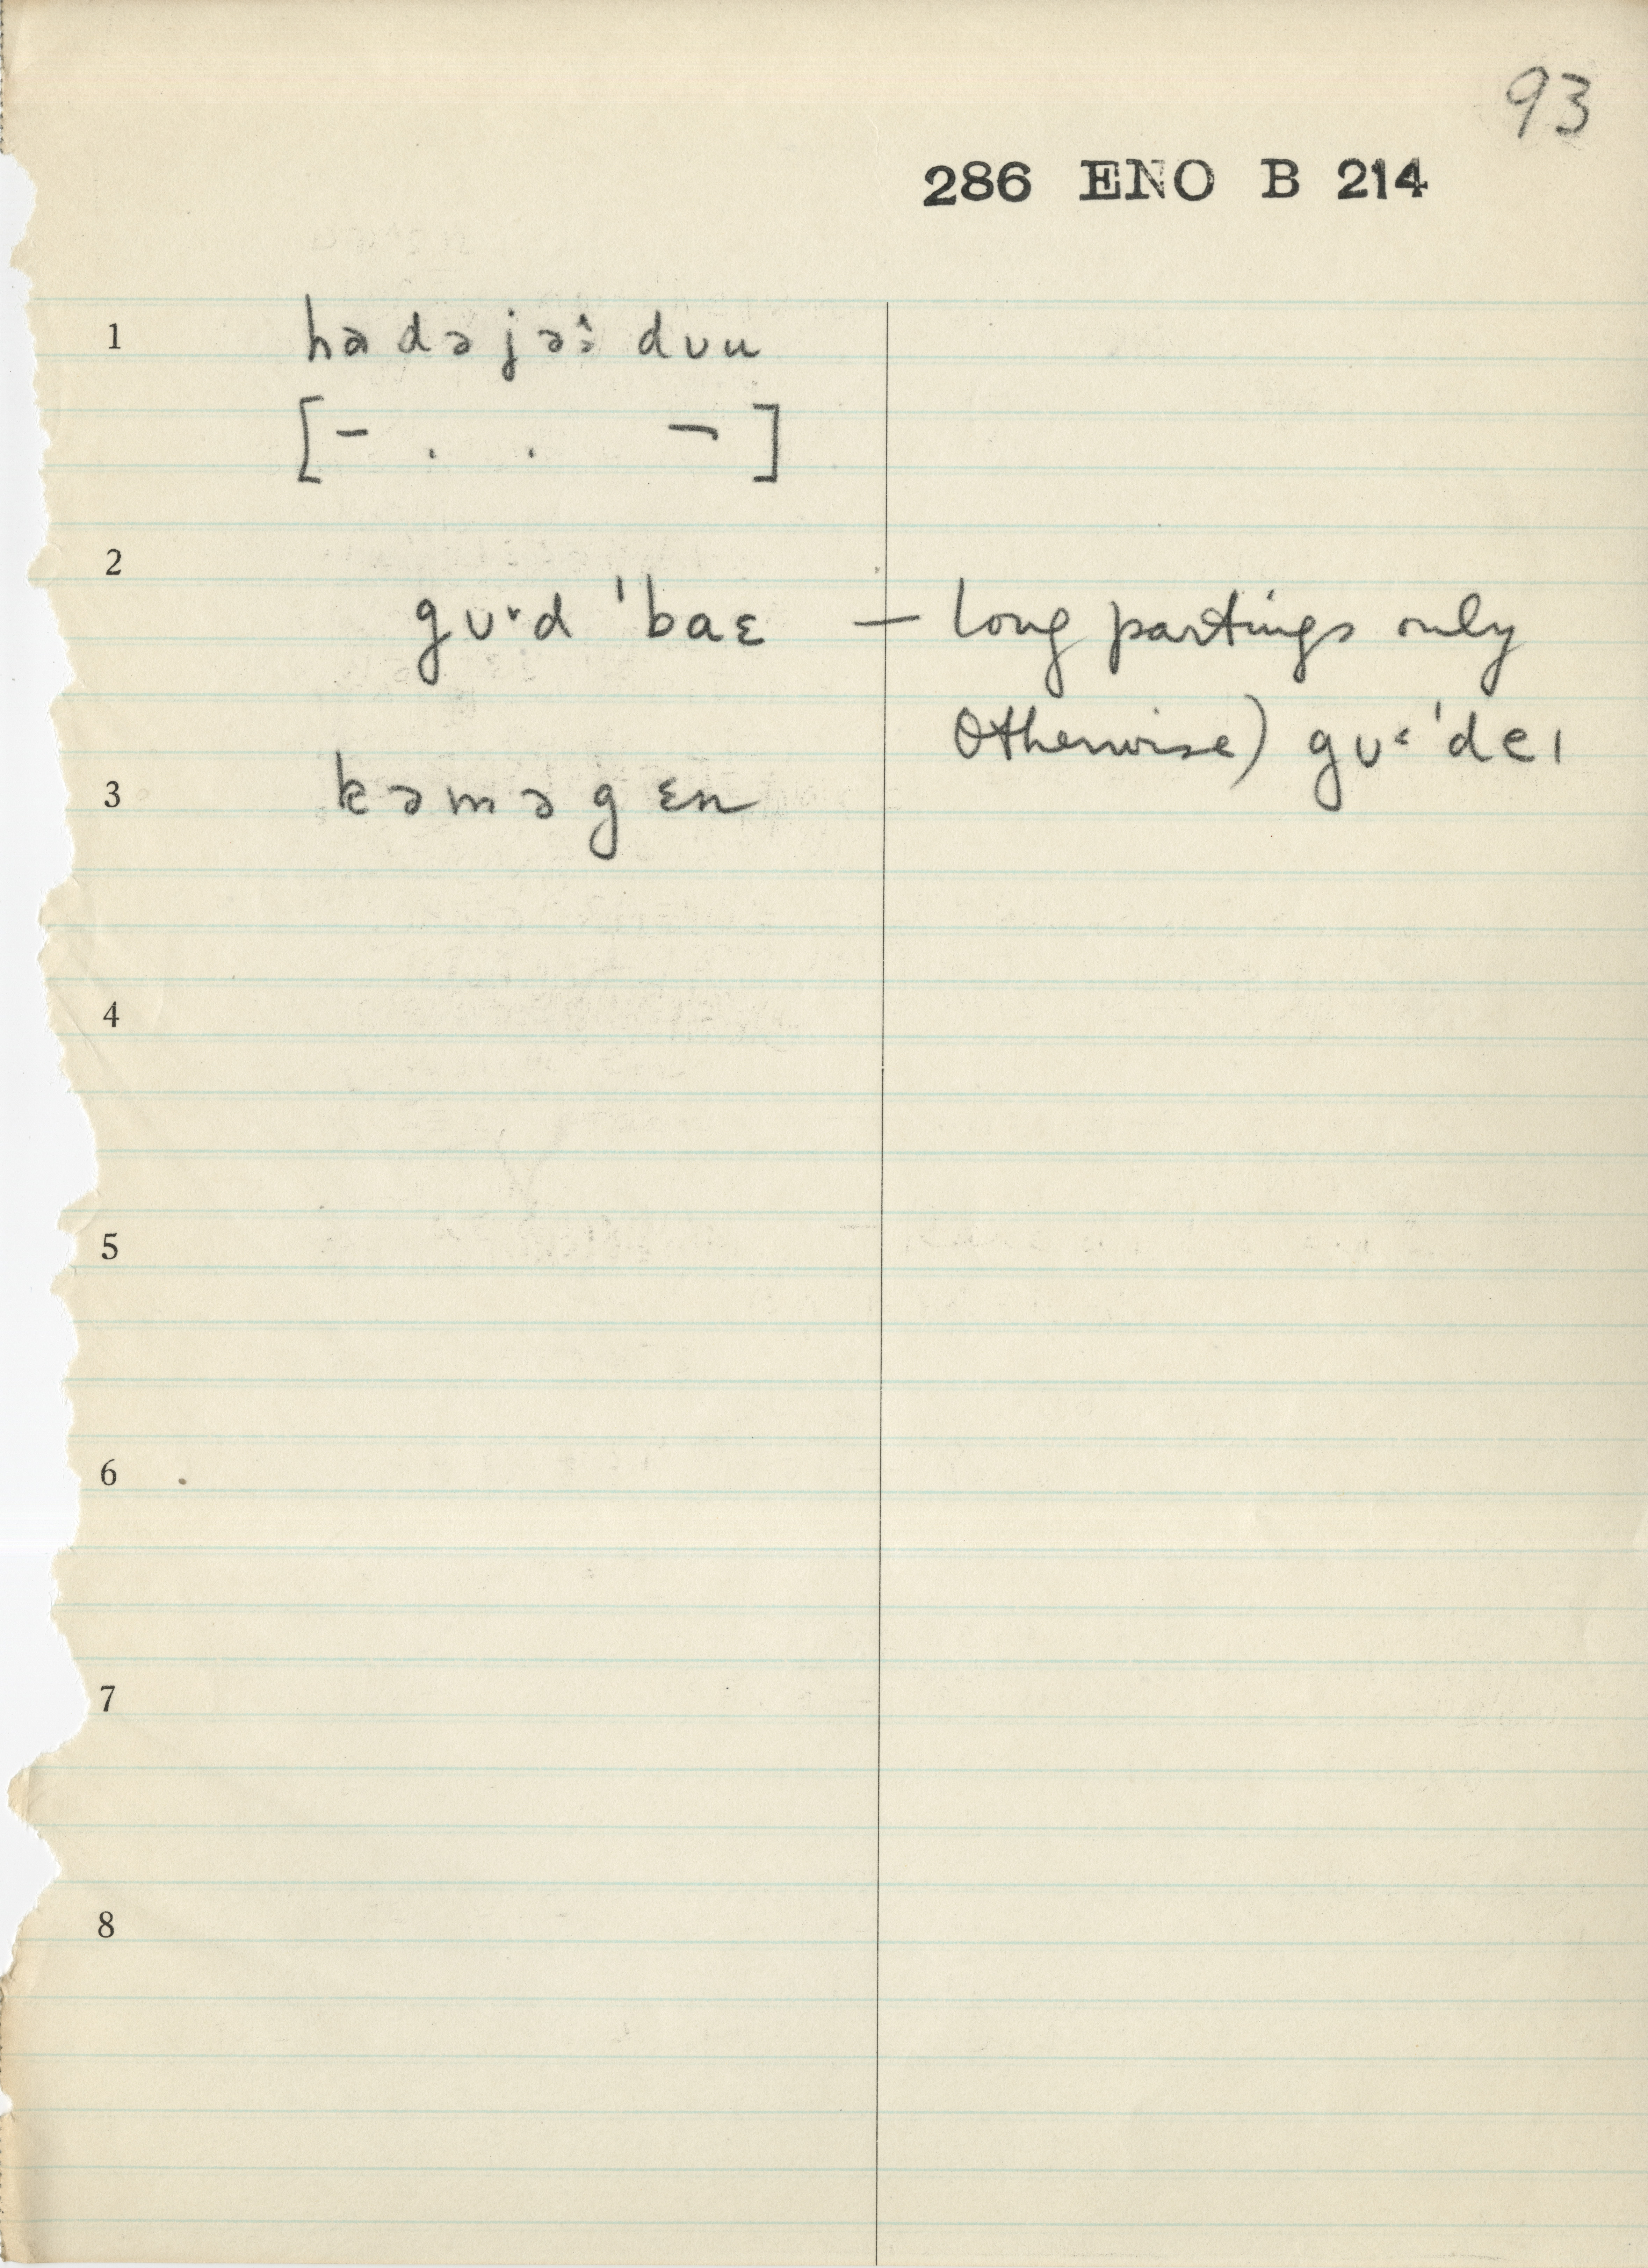 93
286 ENO B 214
1 hadəjəɜ̂ dʋu
[‾ . . ¬]
2
gʋ˅d ˈbaɛ — long partings only
Otherwise) gʋ˂ˈdeı
3 kəməgɛn
4
5
6
7
8